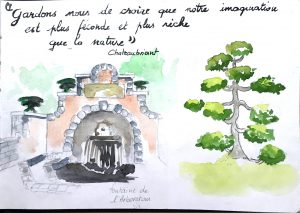 “Gardons nous de croire que notre imagination
est plus féconde et plus riche
que la nature”
Chateaubriant
Fontaine de
l'Arboretum